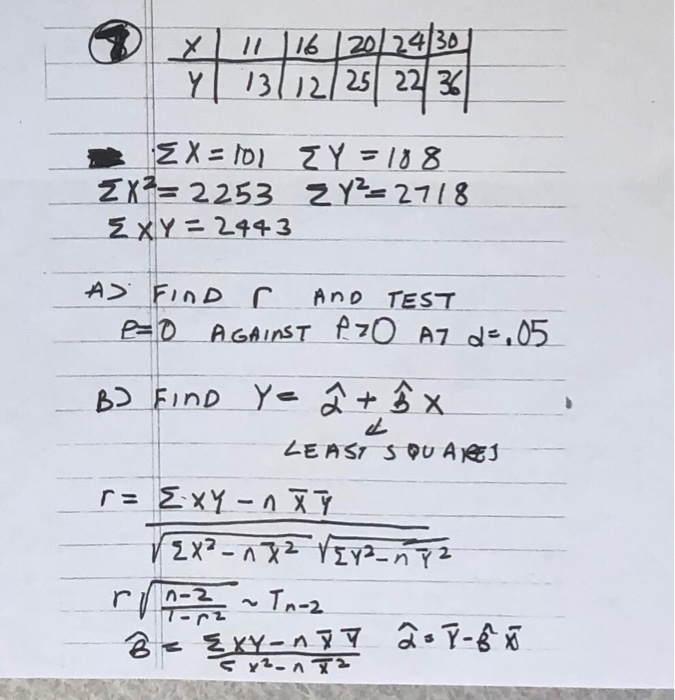 8 X | 11 | 16 | 20 | 24 | 30
Y | 13 | 12 | 25 | 22 | 36
ΣX = 101 ΣY = 108
ΣX² = 2253 ΣY² = 2718
ΣXY = 2443
A) FIND r AND TEST
ρ=0 AGAINST ρ>0 AT α=.05
B) FIND Y = α̂ + β̂ X
↓
LEAST SQUARES
r = ΣXY - n X̄ Ȳ / √ΣX² - n X̄² √ΣY² - n Ȳ²
r √(n-2 / 1-r²) ~ Tn-2
β̂ = ΣXY - n X̄ Ȳ / Σx² - n X̄² α̂ = Ȳ - β̂ X̄